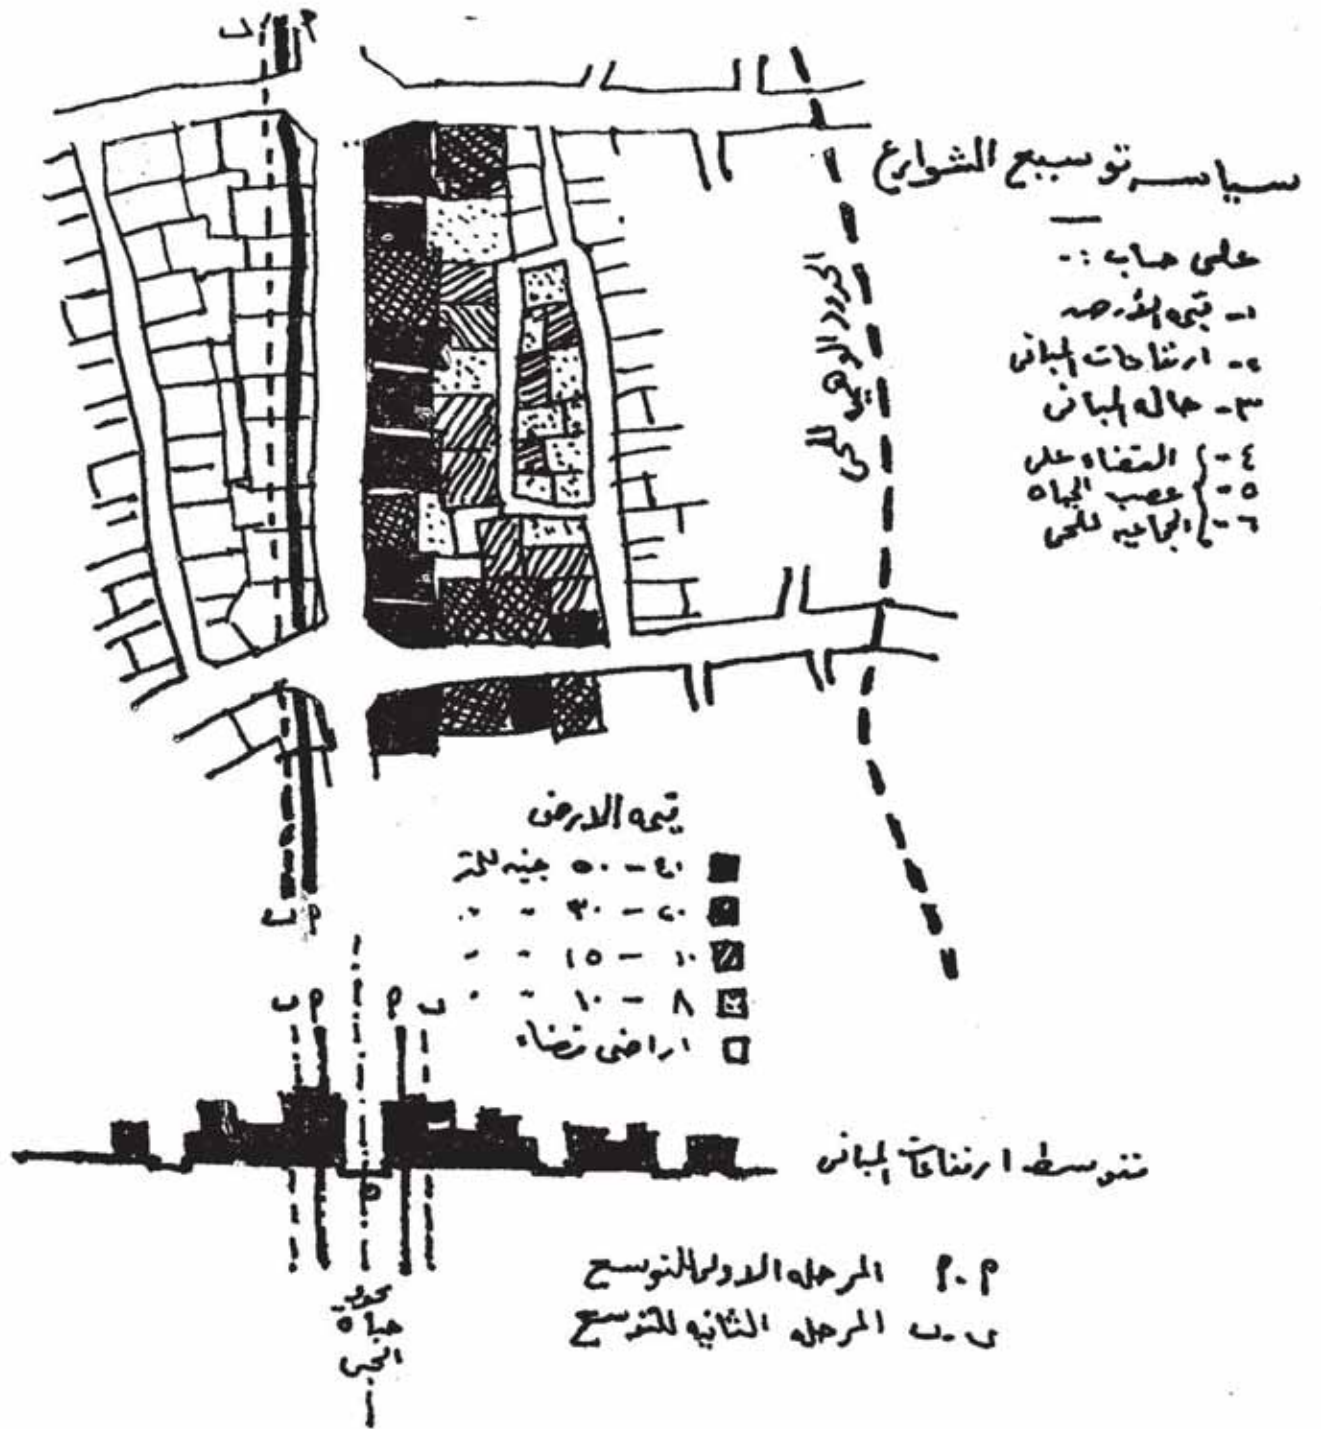 ب م
سياسه توسيع الشوارع
على حساب :-
١- قيمه الأرض
٢- ارتفاعات المبانى
٣- حاله المبانى
٤- القضاء على
٥- عصب الحياه
٦- الجماعيه للحى
الحدود الوهميه للحى
قيمه الارض
٤٠ - ٥٠ جنيه للمتر
٢٠ - ٣٠ " "
١٠ - ١٥ " "
٨ - ١٠ " "
اراضى فضاء
ب م
ب م م ب
متوسط ارتفاعات المبانى
محور
حياة
الحى
م.م المرحله الاولى للتوسيع
ب.ب المرحله الثانيه للتوسيع